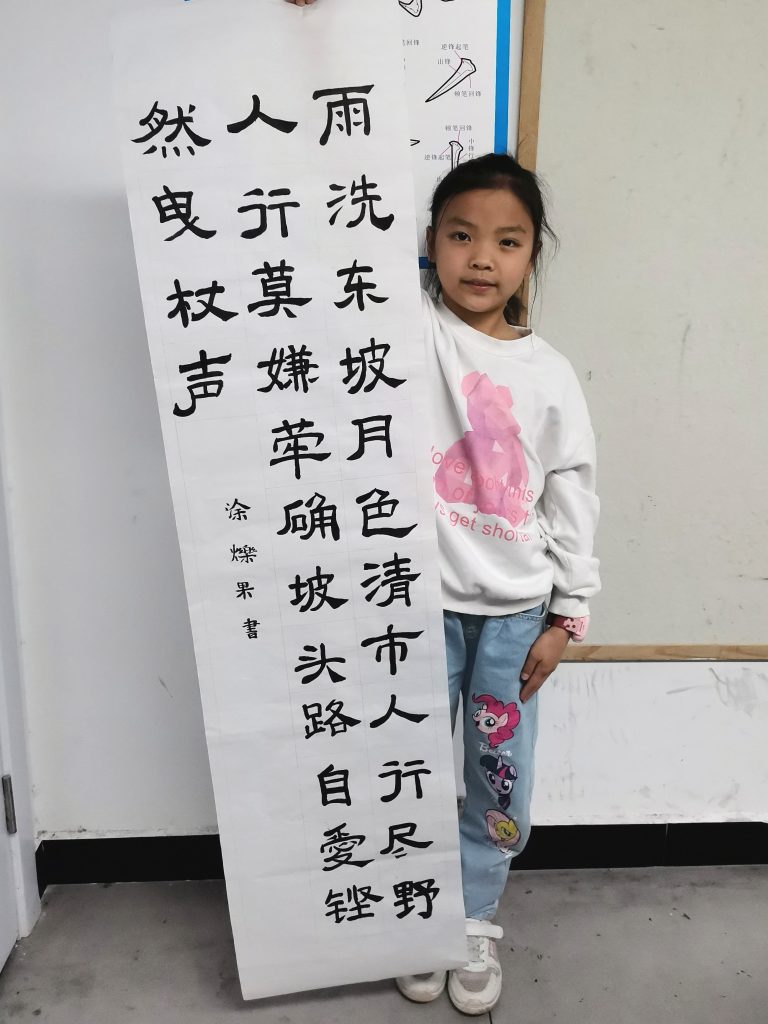 雨洗东坡月色清市人行尽野
人行莫嫌荦确坡头路自愛铿
然曳杖声
涂爍果書
逆锋起笔
出锋
顿笔回锋
顿笔回锋
逆锋起笔
this
get